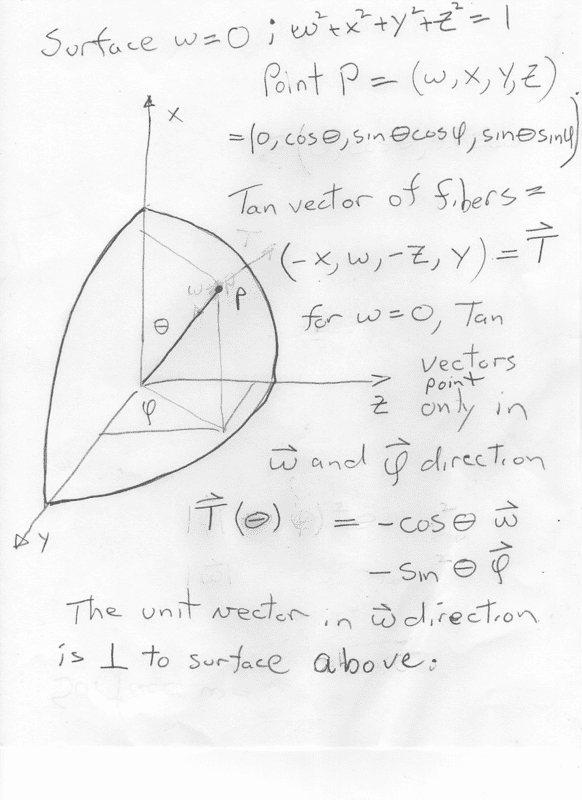 Surface w=0 ; w²+x²+y²+z²=1
Point P = (w,x,y,z)
=(0,cosθ,sinθcosφ,sinθsinφ)
x
Tan vector of fibers =
(-x, w, -z, y) = T⃗
P
θ
for w=0, Tan
vectors
point
z
only in
φ
w⃗ and φ⃗ direction
T⃗(θ) = -cosθ w⃗
y
-sinθ φ⃗
The unit vector in w⃗ direction
is ⊥ to surface above.